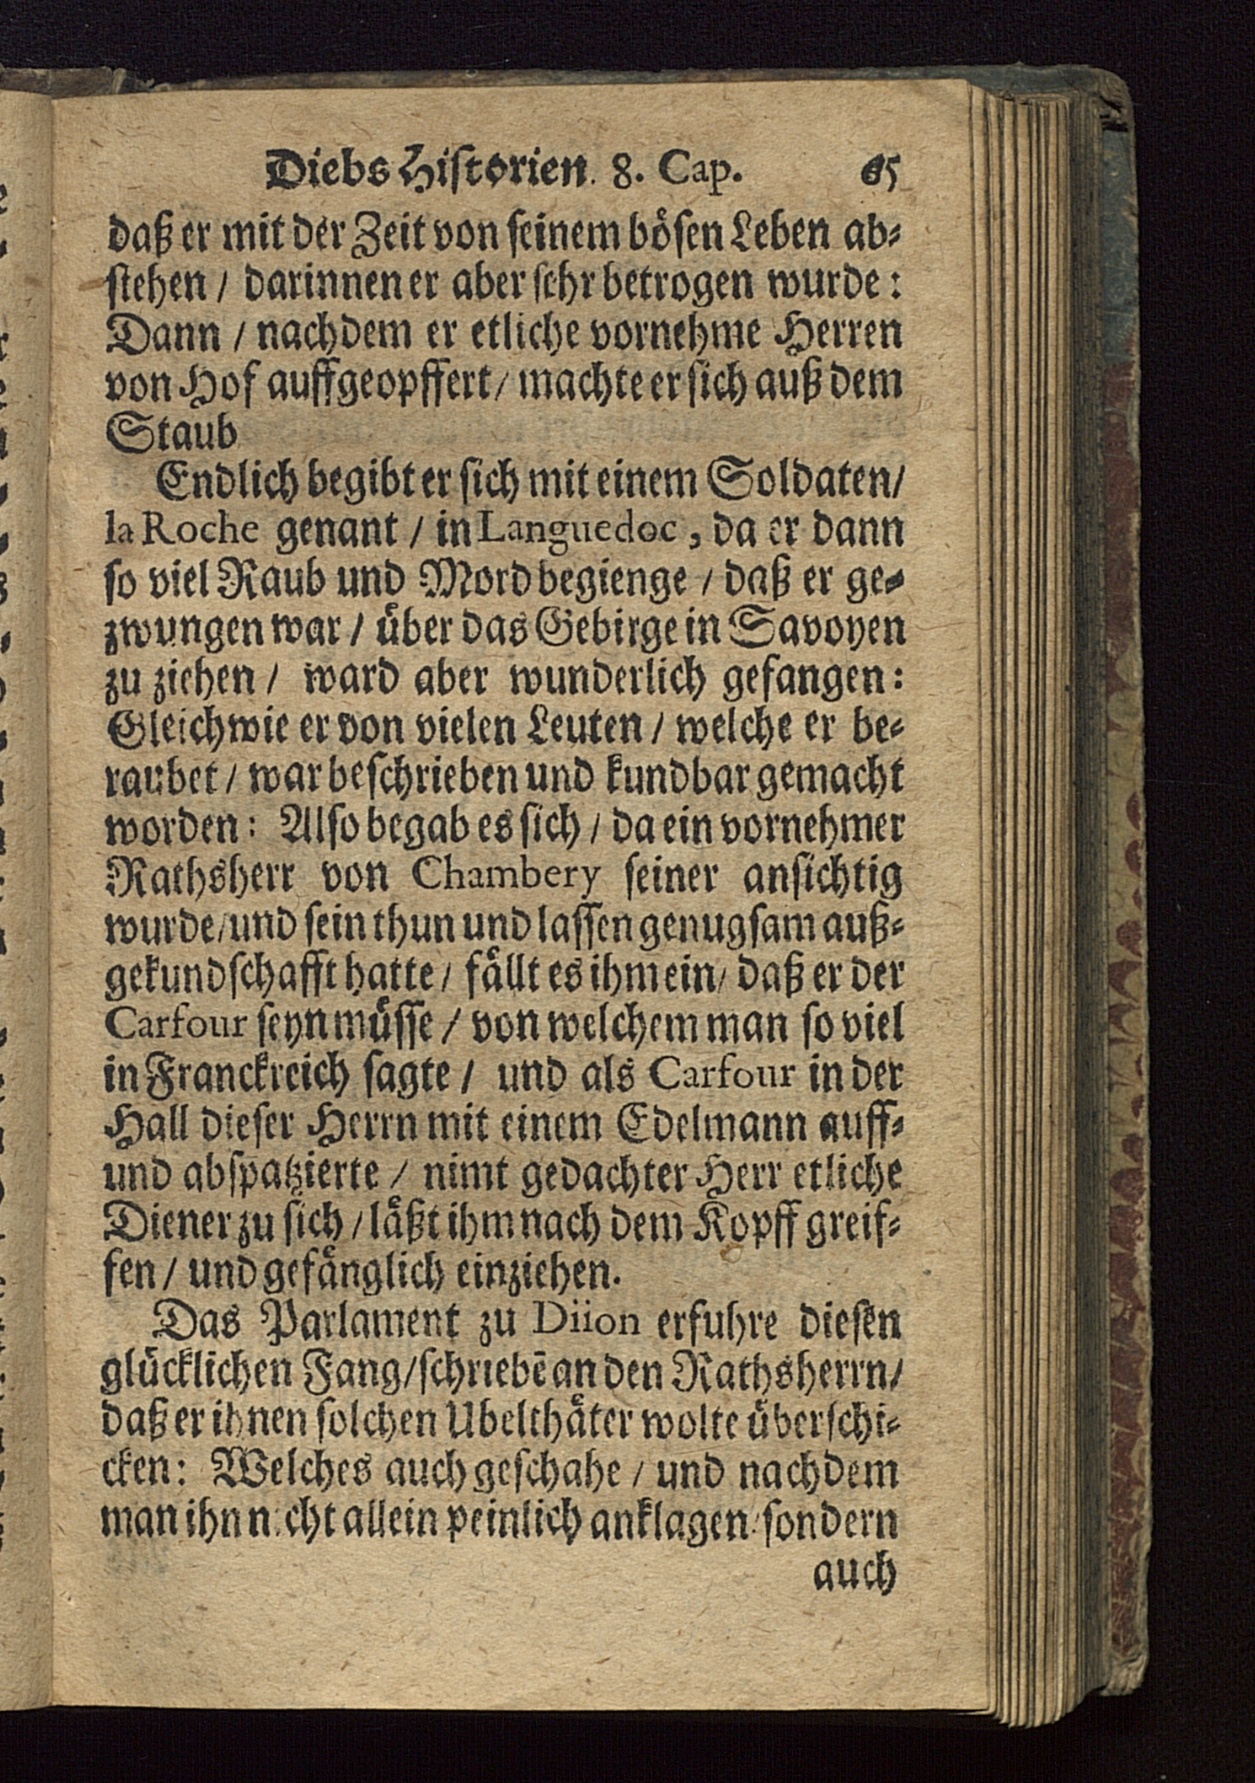 Diebs Historien. 8. Cap. 65
daß er mit der Zeit von seinem bösen Leben ab-
stehen / darinnen er aber sehr betrogen wurde:
Dann / nachdem er etliche vornehme Herren
von Hof auffgeopffert / machte er sich auß dem
Staub
Endlich begibt er sich mit einem Soldaten /
la Roche genant / in Languedoc, da er dann
so viel Raub und Mord begienge / daß er ge-
zwungen war / über das Gebirge in Savoyen
zu ziehen / ward aber wunderlich gefangen:
Gleichwie er von vielen Leuten / welche er be-
raubet / war beschrieben und kundbar gemacht
worden: Also begab es sich / da ein vornehmer
Rathsherr von Chambery seiner ansichtig
wurde / und sein thun und lassen genugsam auß-
gekundschafft hatte / fällt es ihm ein / daß er der
Carfour seyn müsse / von welchem man so viel
in Franckreich sagte / und als Carfour in der
Hall dieser Herrn mit einem Edelmann auff-
und abspatzierte / nimt gedachter Herr etliche
Diener zu sich / läßt ihm nach dem Kopff greif-
fen / und gefänglich einziehen.
Das Parlament zu Diion erfuhre diesen
glücklichen Fang / schriebē an den Rathsherrn /
daß er ihnen solchen Ubelthäter wolte überschi-
cken: Welches auch geschahe / und nachdem
man ihn nicht allein peinlich anklagen / sondern
auch